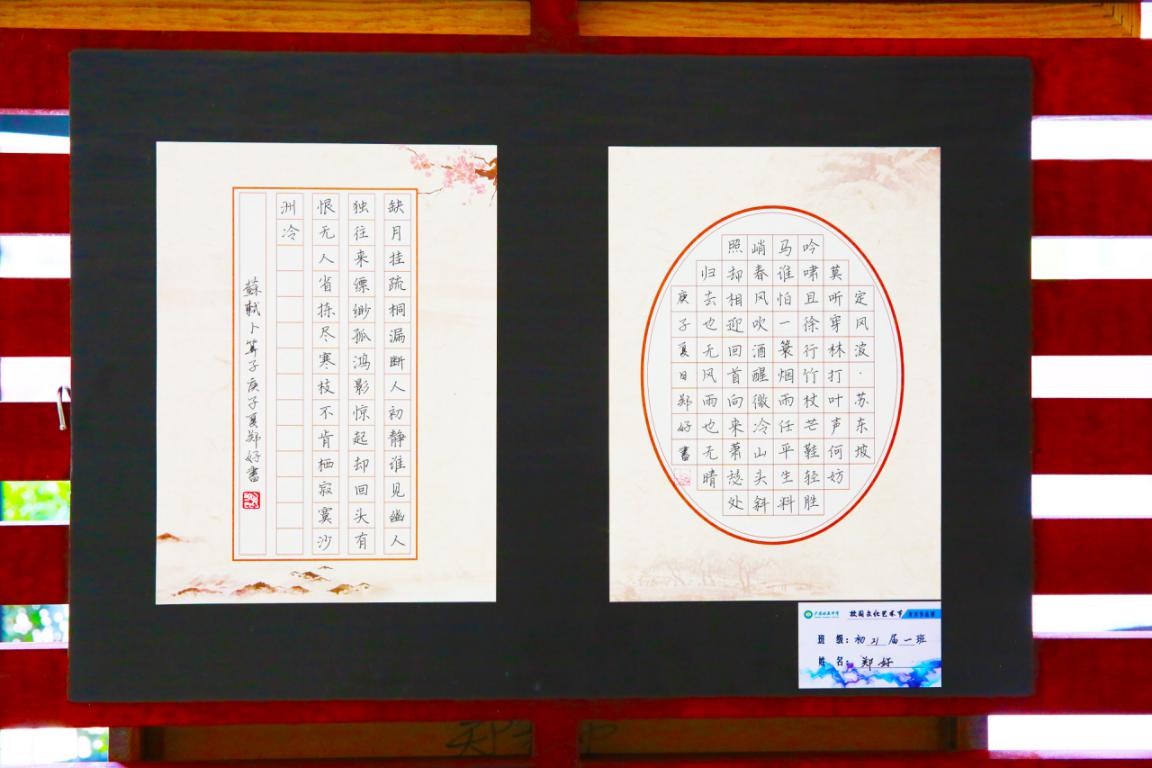 缺月挂疏桐漏断人初静谁见幽人
独往来缥缈孤鸿影惊起却回头有
恨无人省拣尽寒枝不肯栖寂寞沙
洲冷
蘇軾卜算子庚子夏郑好書
定风波·苏东坡
莫听穿林打叶声何妨
吟啸且徐行竹杖芒鞋轻胜
马谁怕一蓑烟雨任平生料
峭春风吹酒醒微冷山头斜
照却相迎回首向来萧瑟处
归去也无风雨也无晴
庚子夏日郑好書
校园文化艺术节
班级：初21届一班
姓名：郑好